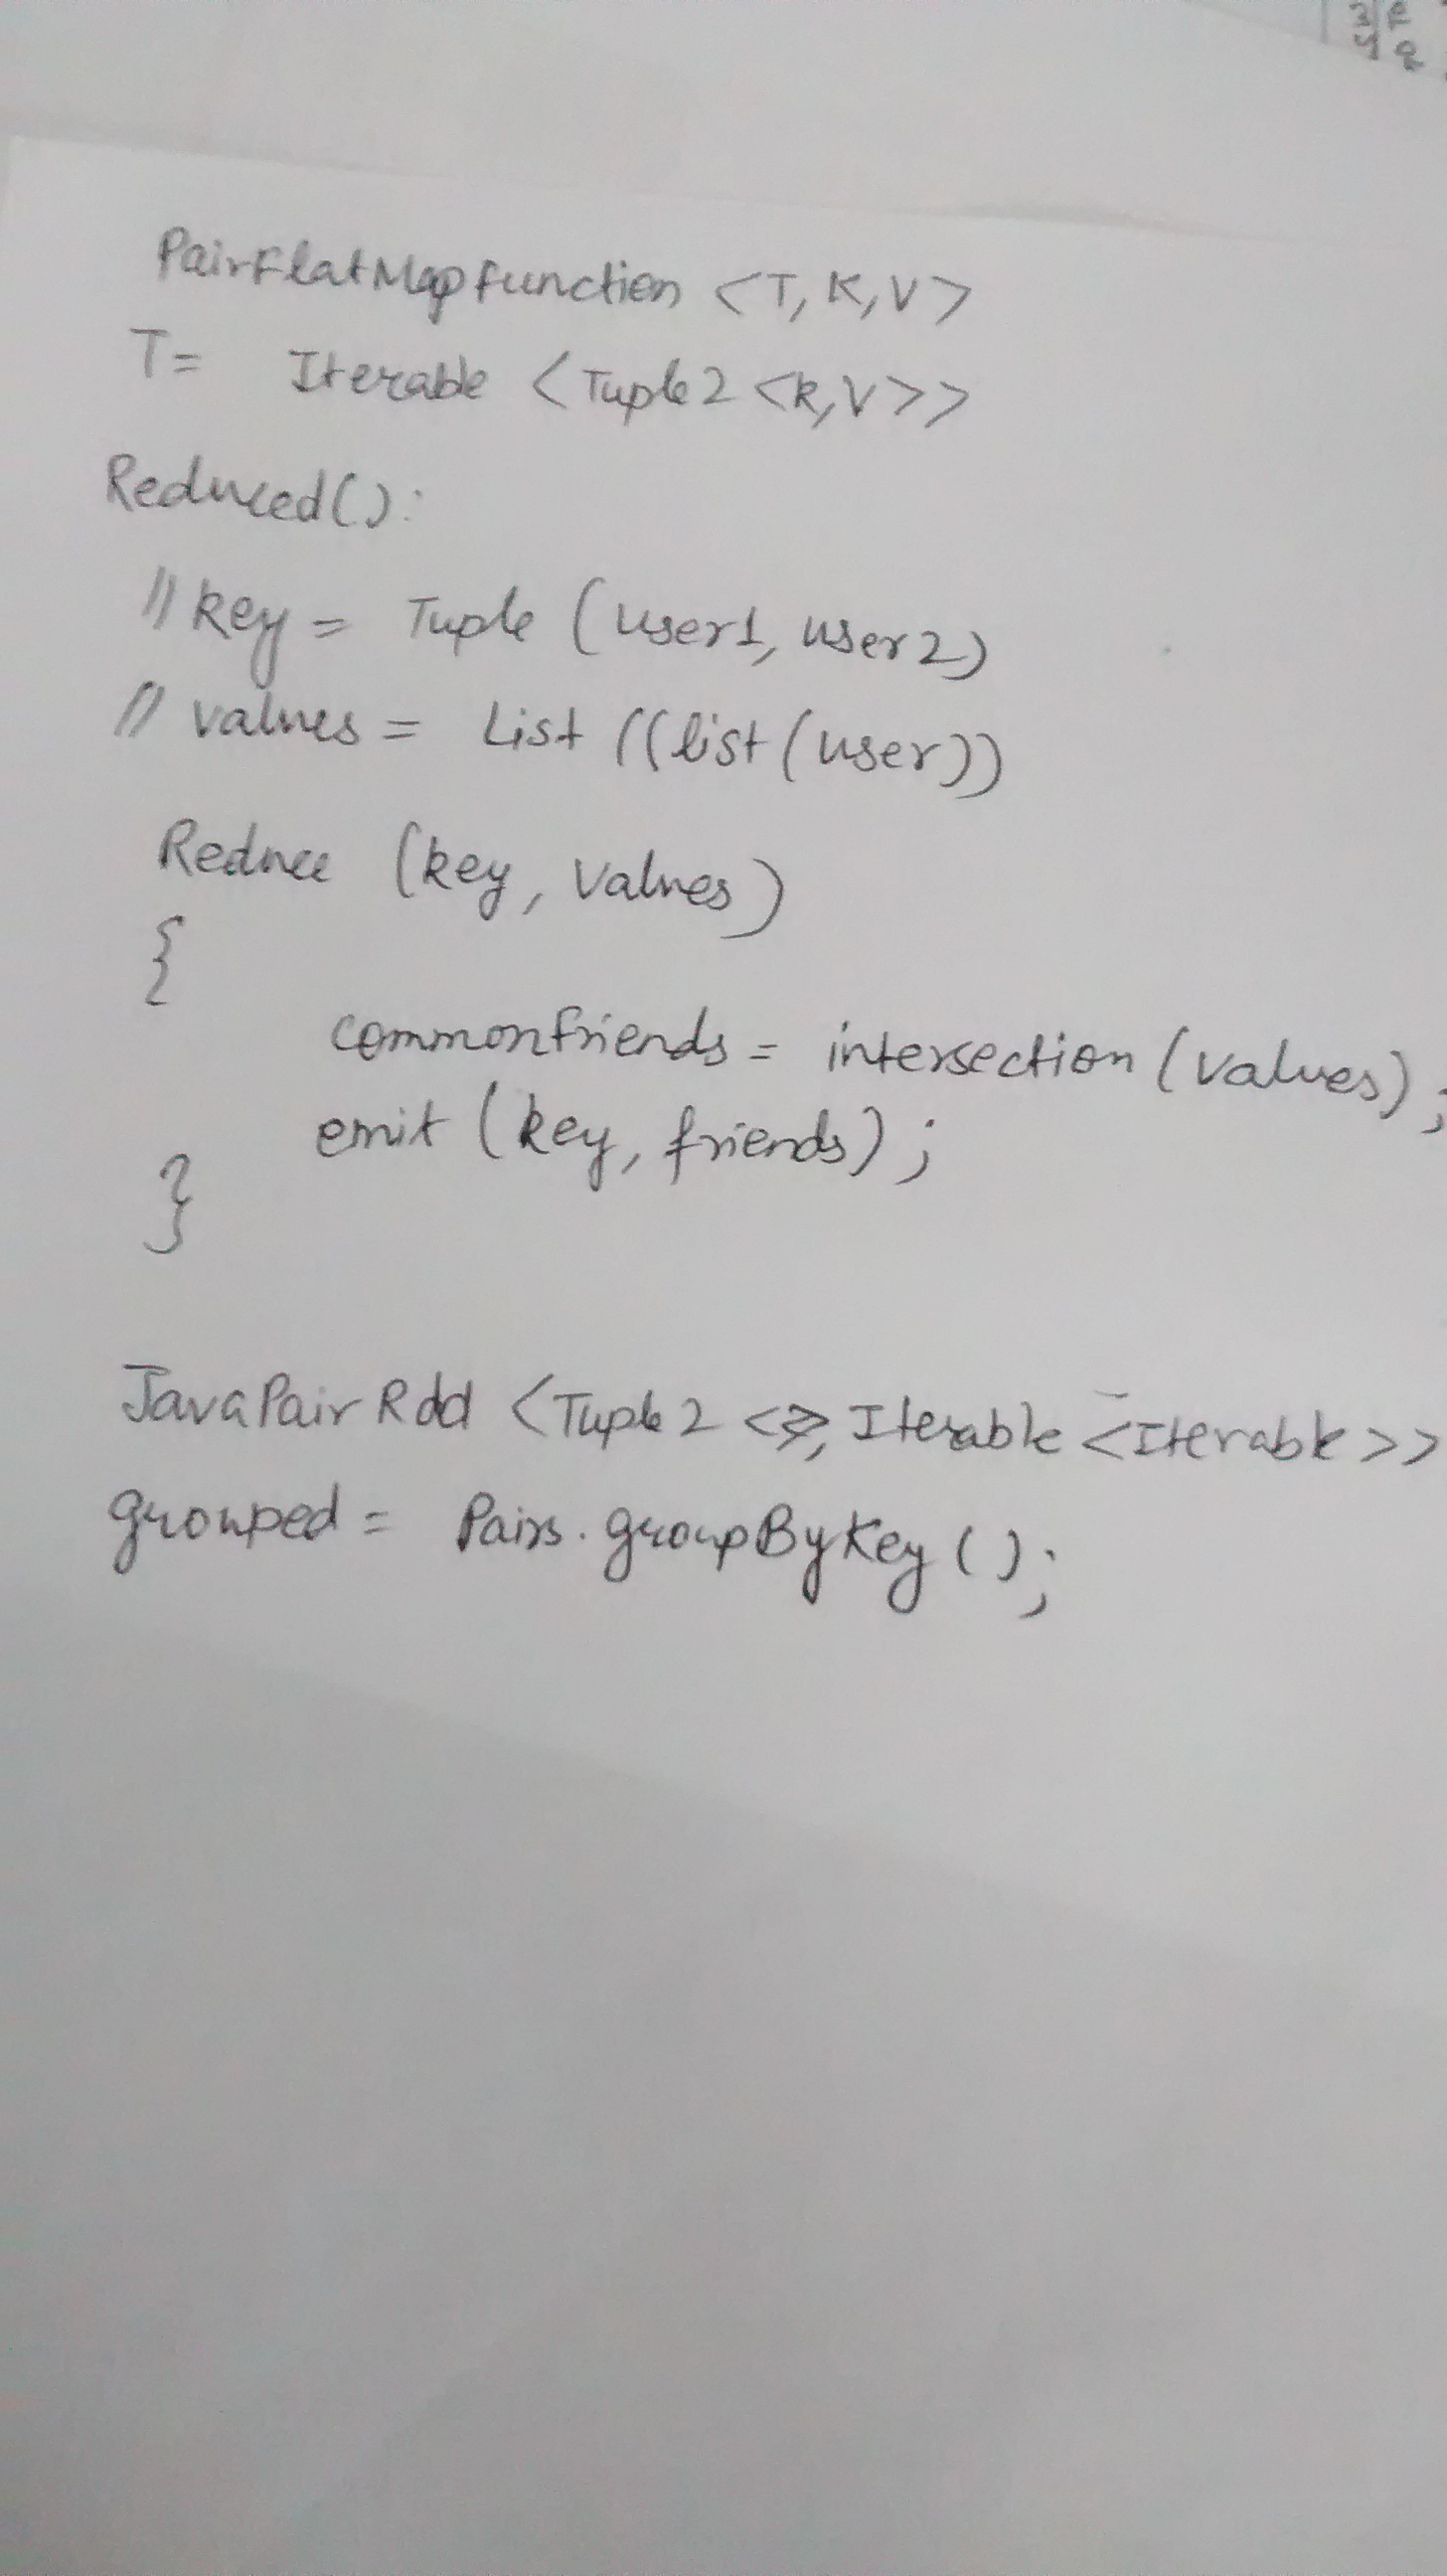 3 F
4 Q
PairFlatMapfunction <T, K, V>
T= Iterable <Tuple2 <K, V>>
Reduced():
// key = Tuple (user1, user2)
// values = List ((list (user))
Reduce (key, values)
{
commonfriends = intersection (values);
emit (key, friends);
}
JavaPairRdd <Tuple2 <>, Iterable <Iterable>>
grouped = Pairs.groupByKey();